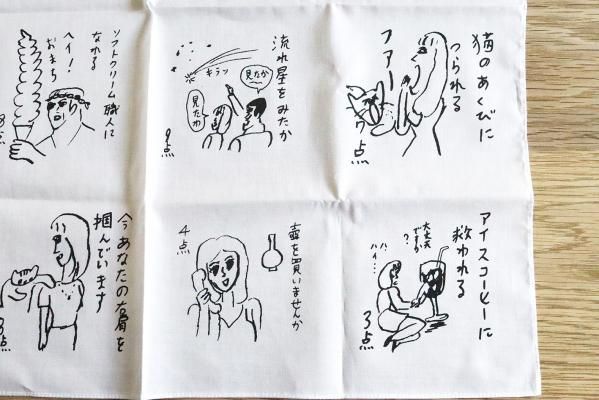 猫のあくびに
つられる
ファー
7点
流れ星をみたか
キラッ
見たか
見たわ
9点
ソフトクリーム職人に
なれる
ヘイ!
おまち
8点
アイスコーヒーに
救われる
大丈夫
ですか
?
ハ、
ハイ…
3点
壷を買いませんか
4点
今あなたの右肩を
掴んでいます